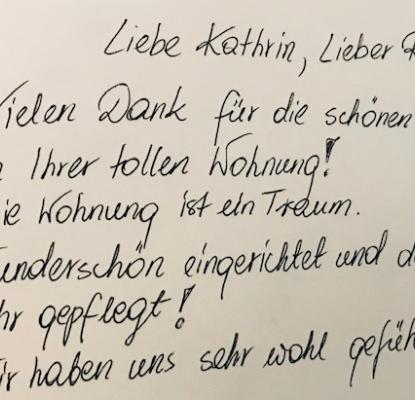 Liebe Kathrin, Lieber
Vielen Dank für die schönen
Ihrer tollen Wohnung!
ie Wohnung ist ein Traum.
underschön eingerichtet und d
hr gepflegt!
ir haben uns sehr wohl gefüh